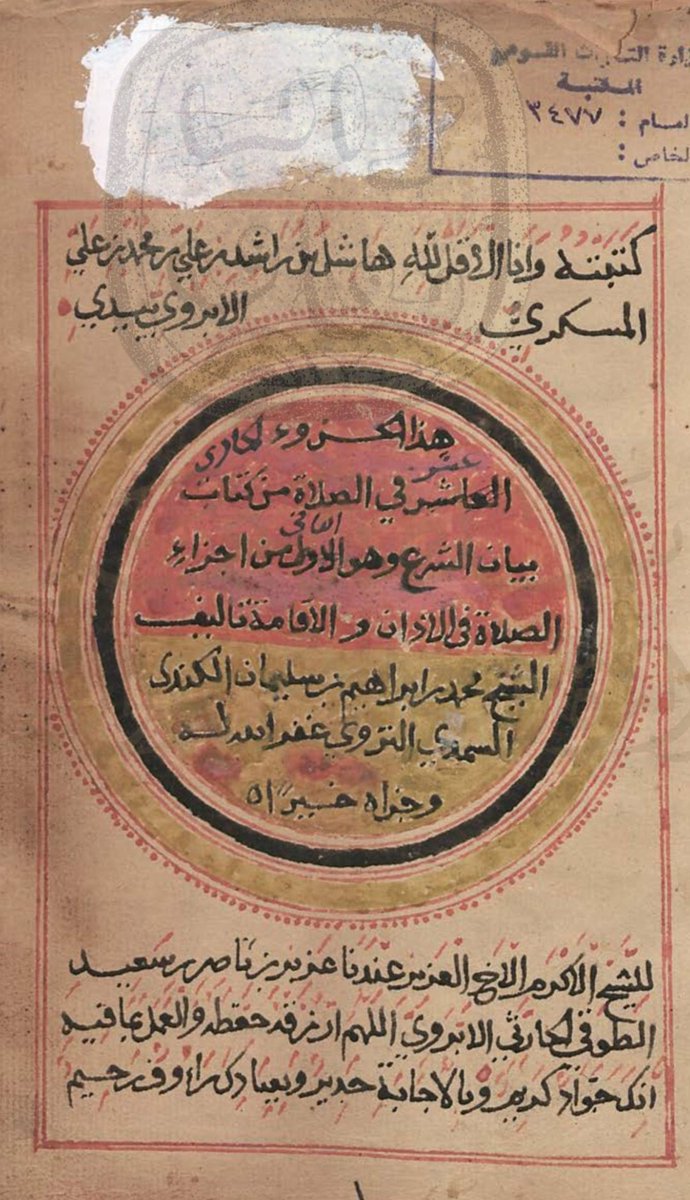 وزارة التراث القومي
المكتبة
العام : ٣٤٧٧
الخاص :
كتبته وانا الاقل لله هاشل بن راشد بن علي بن محمد بن علي
المسكري الابروي بيدي
هذا الجزوء الحادي
عشر
العاشر في الصلاة من كتاب
الثاني
بيان الشرع وهو الاول من اجزاء
الصلاة في الاذان و الاقامة تاليف
الشيخ محمد بن ابراهيم بن سليمان الكندي
السمدي النزوي غفر الله له
وجزاه خيرا
للشيخ الاكرم الاخ العزيز عندنا عزيز بن ناصر بن سعيد
الطوقي الحارثي الابروي اللهم ارزقه حفظه والعمل بما فيه
انك جواد كريم وبالاجابة جدير وبعبادك رأوف رحيم
١